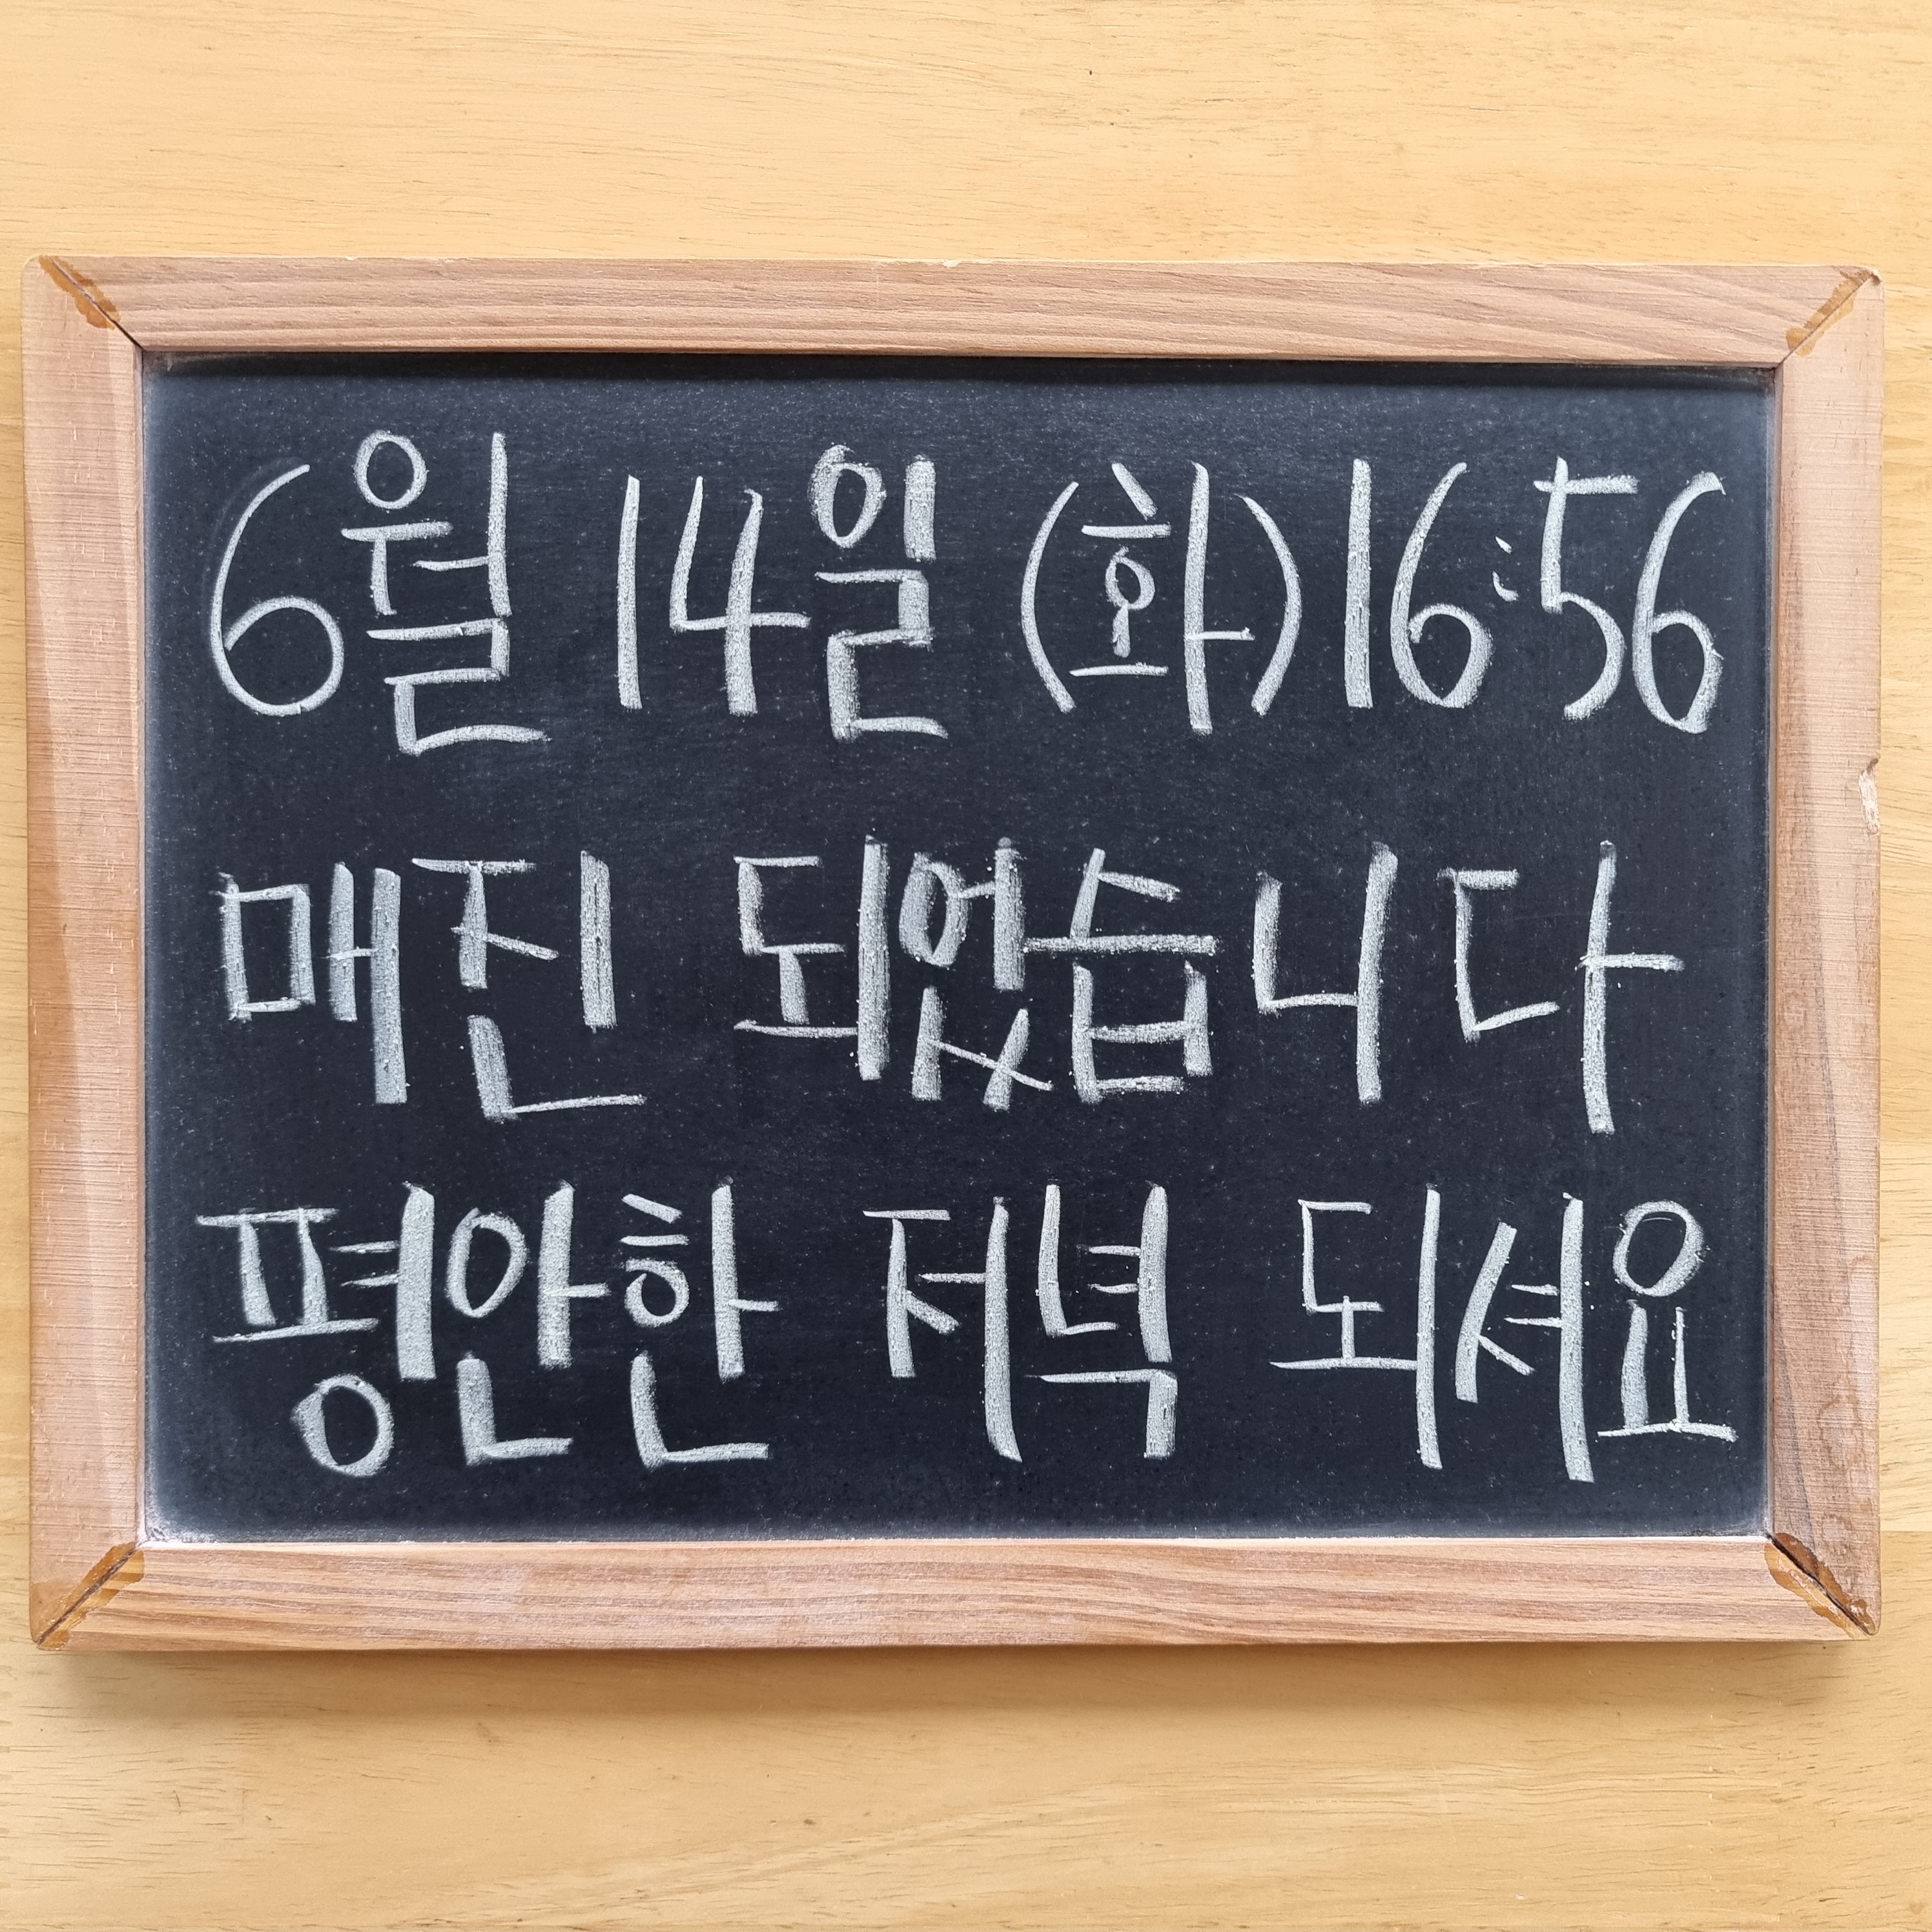 6월 14일 (화) 16:56
매진 되었습니다
평안한 저녁 되셔요